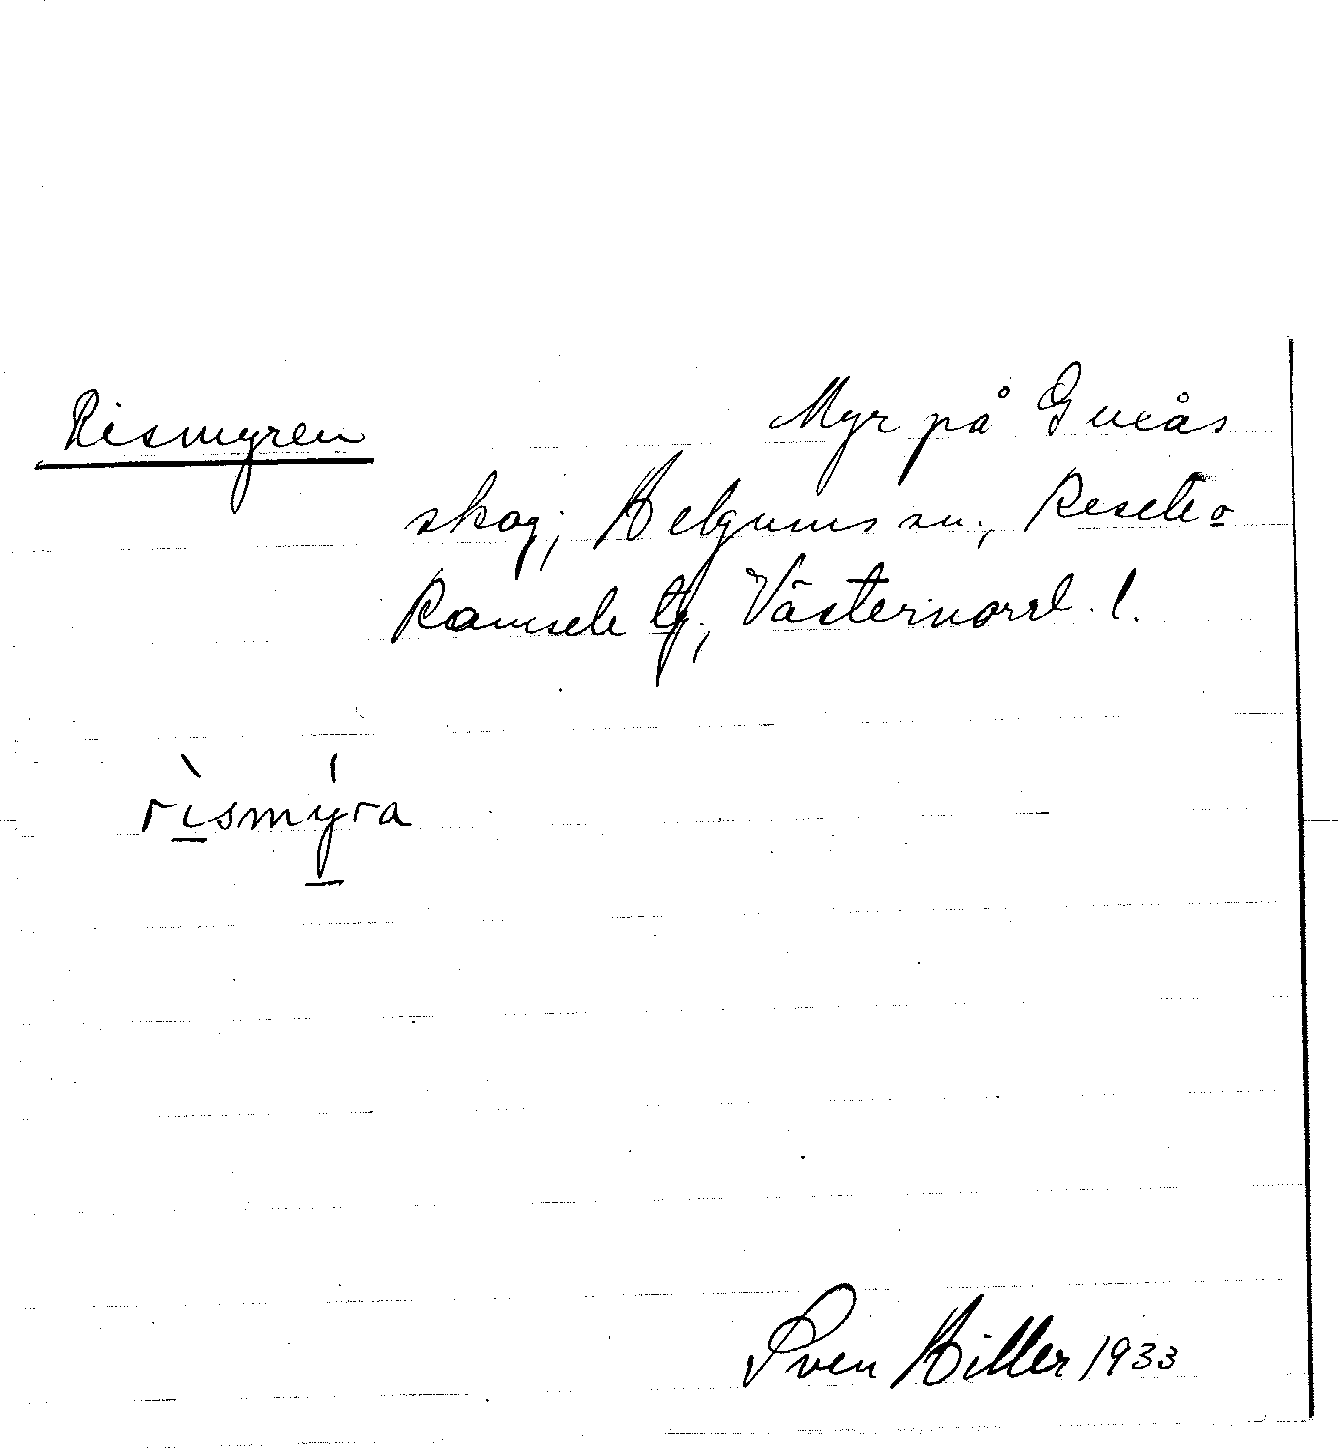 Rismyren
Myr på Guxås
skog; Helgums sn., Resele o
Ramsele tg, Västernorrl. l.
rìsmýra
Sven Hiller 1933